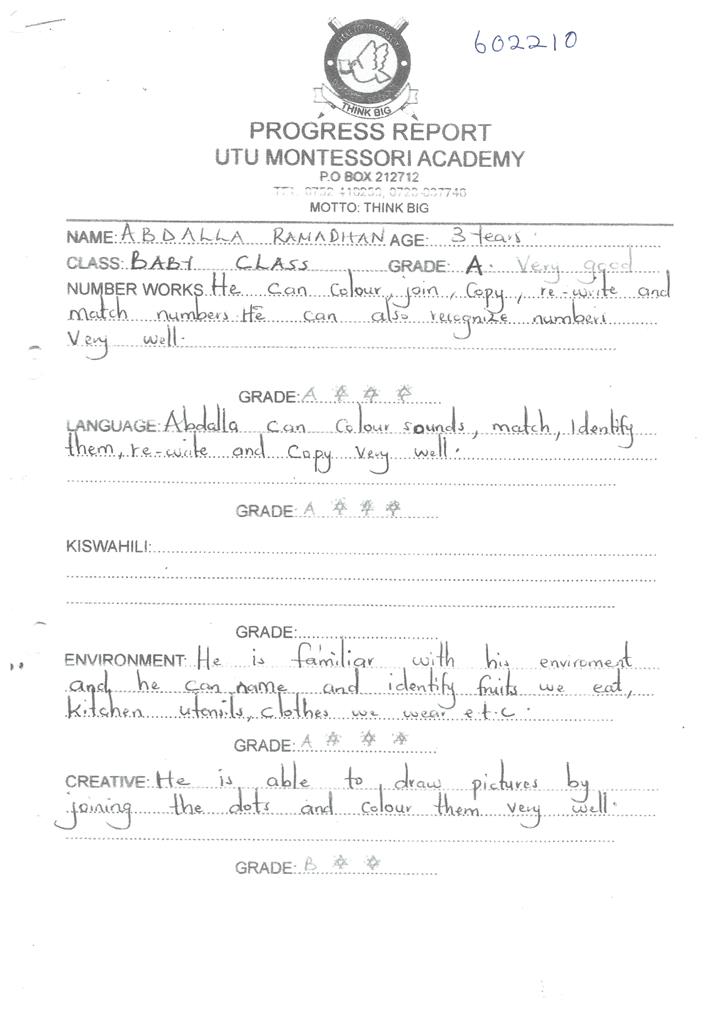 602210
THINK BIG
PROGRESS REPORT
UTU MONTESSORI ACADEMY
P.O BOX 212712
MOTTO: THINK BIG
NAME: ABDALLA RAMADHAN AGE: 3 Years.
CLASS: BABY CLASS GRADE: A. Very good
NUMBER WORKS He can colour, join, copy, re-write and
match numbers. He can also recognize numbers
Very well.
GRADE: A
LANGUAGE: Abdalla can colour sounds, match, Identify
them, re-write and copy very well.
GRADE: A
KISWAHILI:
GRADE:
ENVIRONMENT: He is familiar with his enviroment
and he can name and identify fruits we eat,
kitchen utensils, clothes we wear e.t.c.
GRADE: A
CREATIVE: He is able to draw pictures by
joining the dots and colour them very well.
GRADE: B